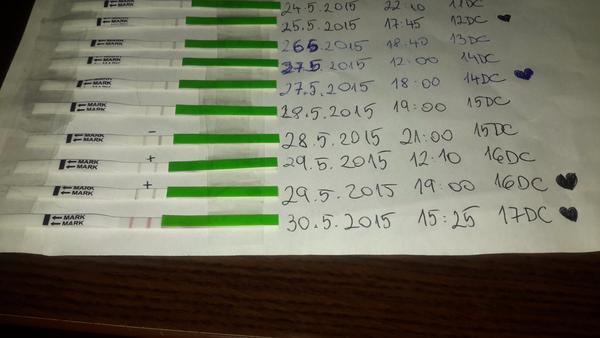 MARK MARK 24.5.2015 22:10 11DC
MARK MARK 25.5.2015 17:45 12DC
MARK MARK 26.5.2015 18:40 13DC
MARK MARK 27.5.2015 12:00 14DC
MARK MARK 27.5.2015 18:00 14DC
MARK MARK 28.5.2015 19:00 15DC
MARK MARK - 28.5.2015 21:00 15DC
MARK MARK + 29.5.2015 12:10 16DC
MARK MARK + 29.5.2015 19:00 16DC
MARK MARK 30.5.2015 15:25 17DC